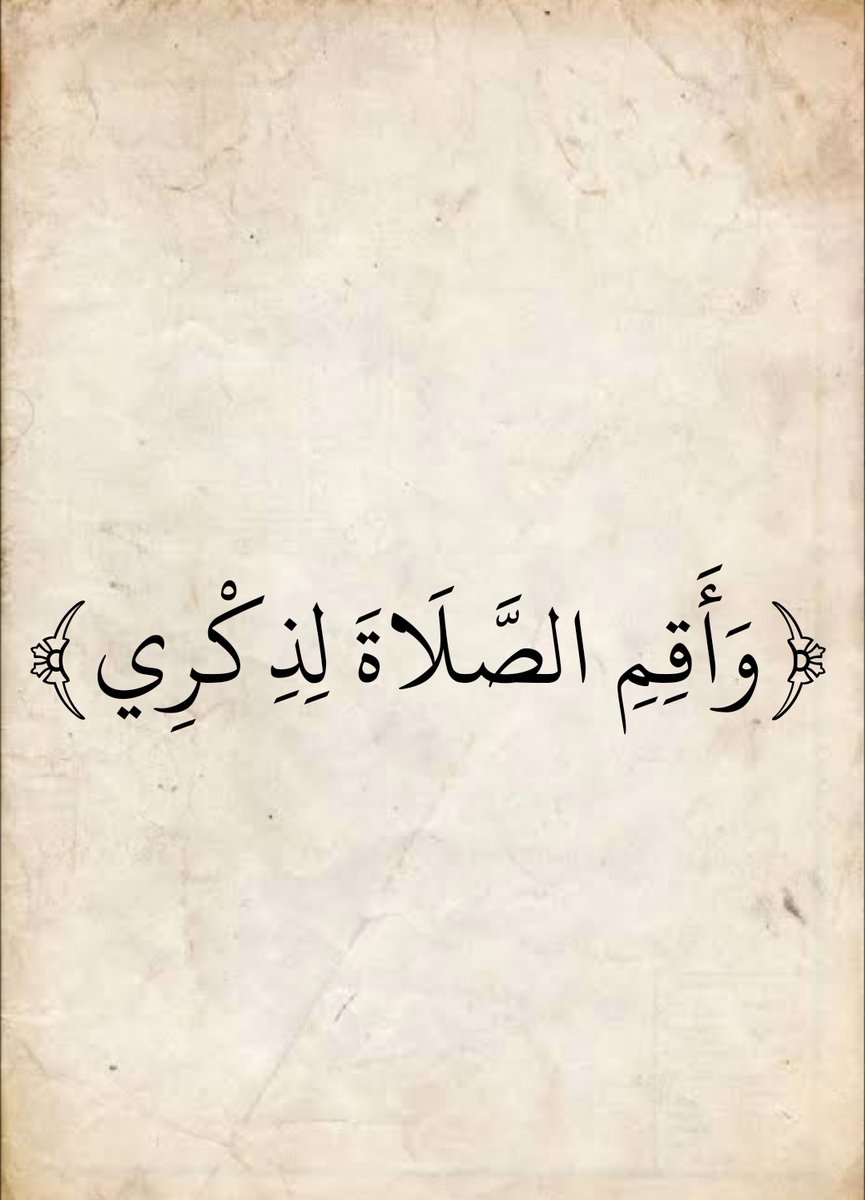 ﴿وَأَقِمِ الصَّلَاةَ لِذِكْرِي﴾